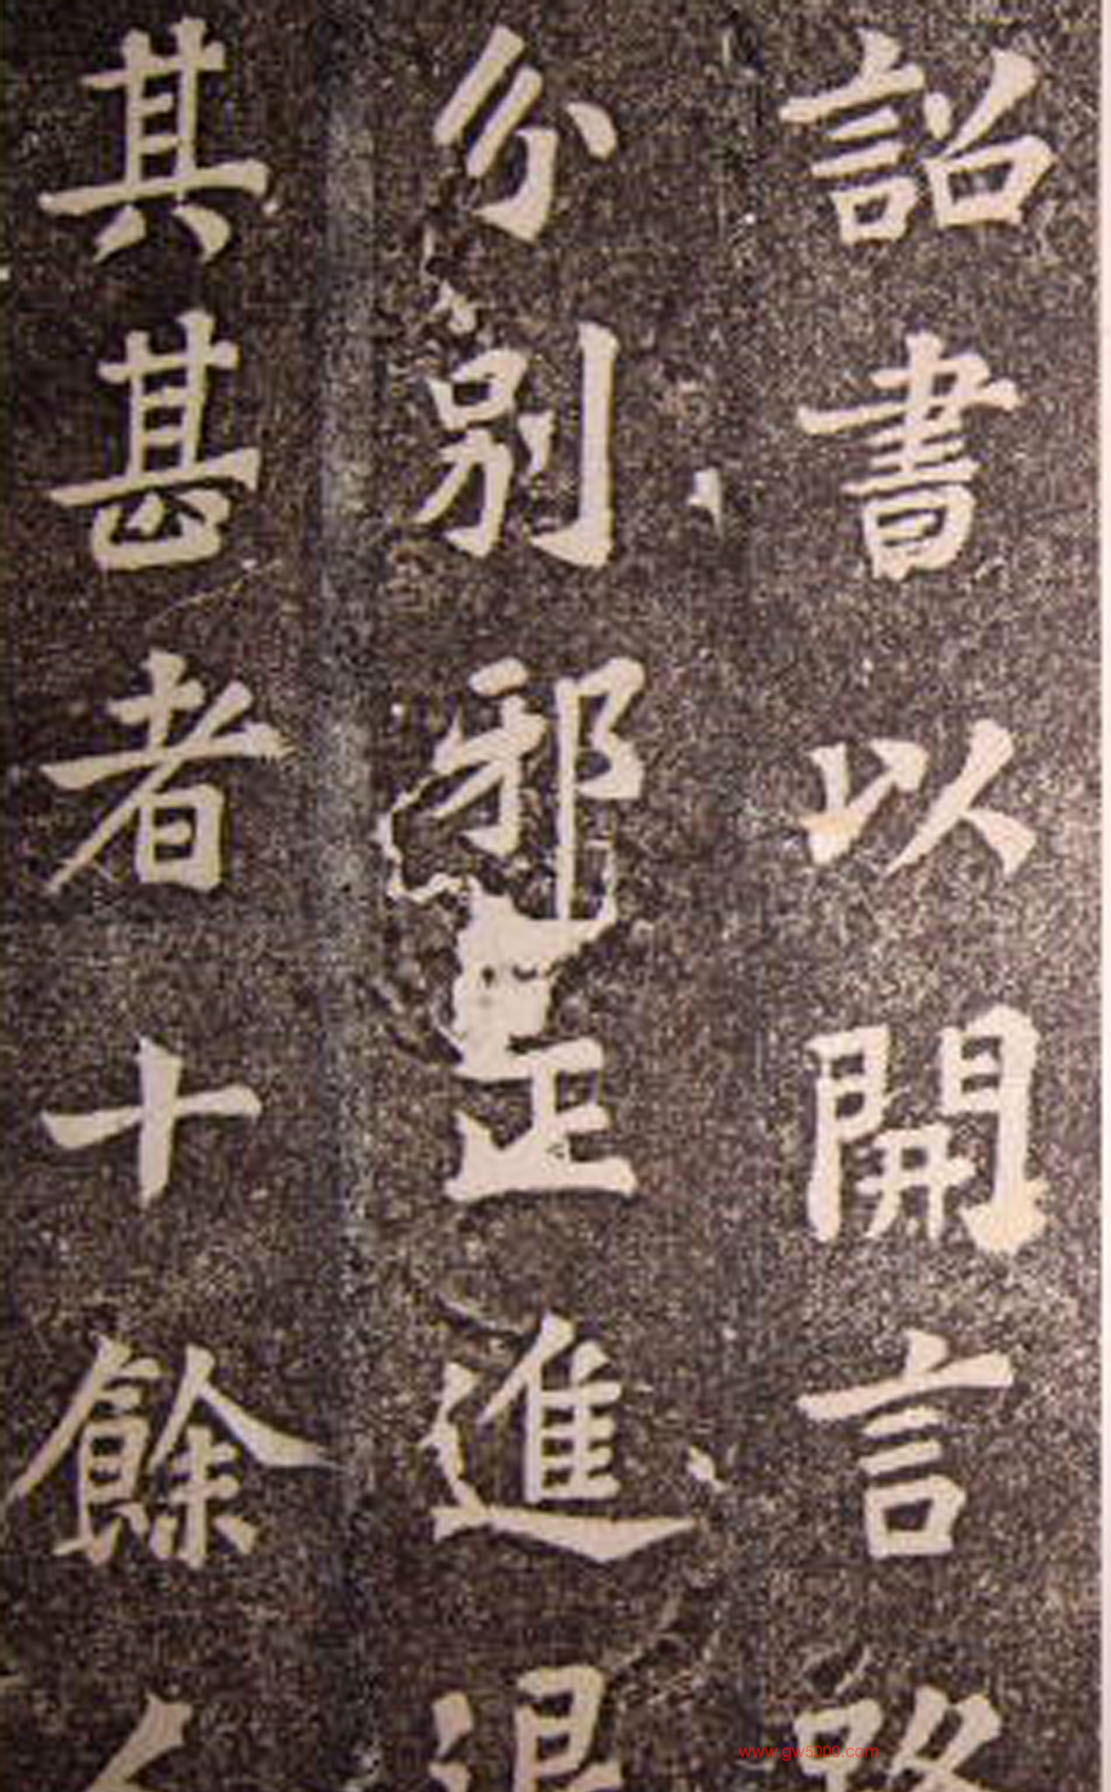 詔書以開言路
分別邪正進退
其甚者十餘人
www.gw5000.com